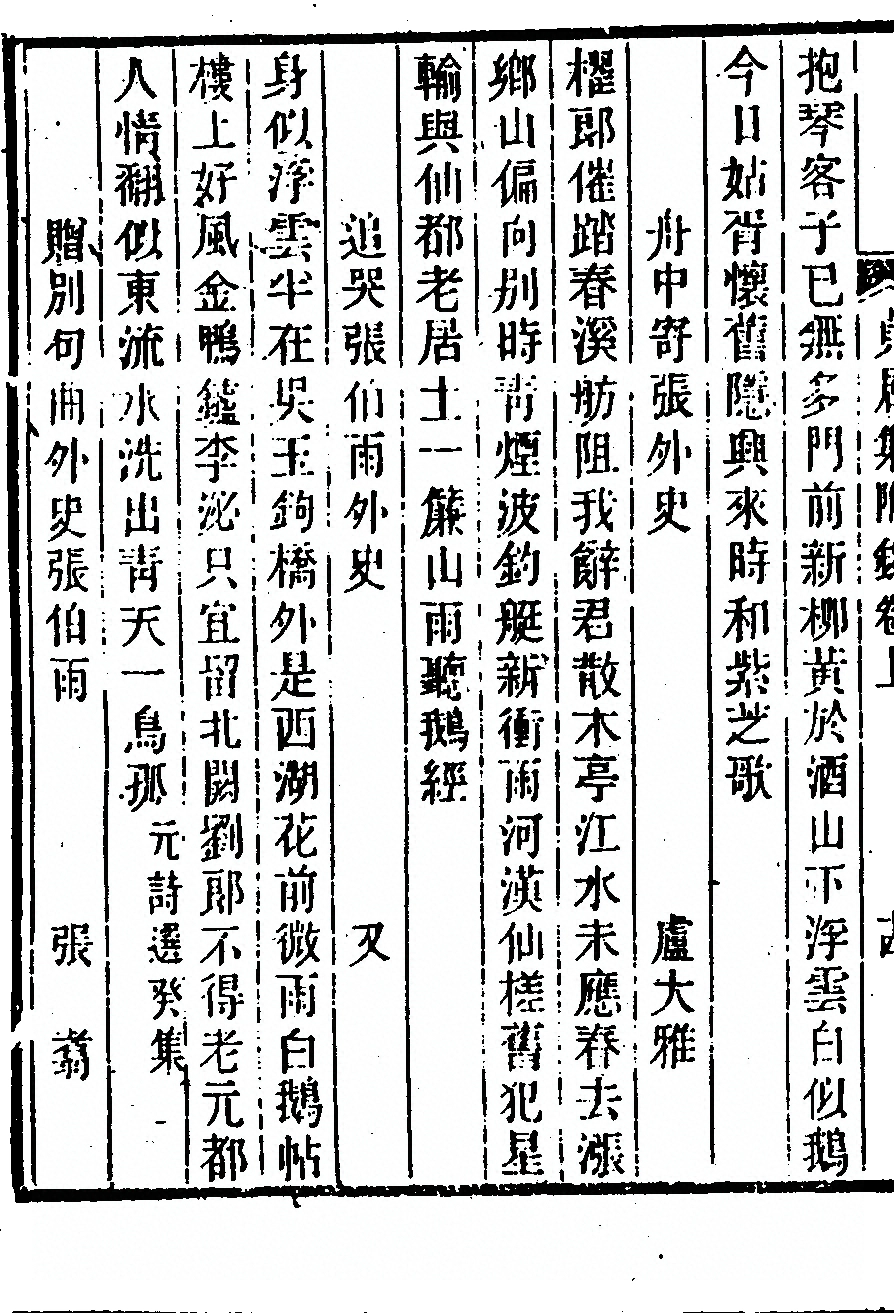 貞居集附錄卷上 古
抱琴客子已無多門前新柳黃於酒山下浮雲白似鵝
今日姑胥懷舊隱興來時和紫芝歌
舟中寄張外史 盧大雅
櫂郎催踏春溪舫阻我辭君散木亭江水未應春去漲
鄉山偏向別時青煙波釣艇新衝雨河漢仙槎舊犯星
輸與仙都老居士一簾山雨聽鵝經
追哭張伯雨外史 又
身似浮雲半在吳玉鉤橋外是西湖花前微雨白鵝帖
樓上好風金鴨鑪李泌只宜留北闕劉郎不得老元都
人情翻似東流水洗出青天一鳥孤元詩選癸集
贈別句曲外史張伯雨 張翥